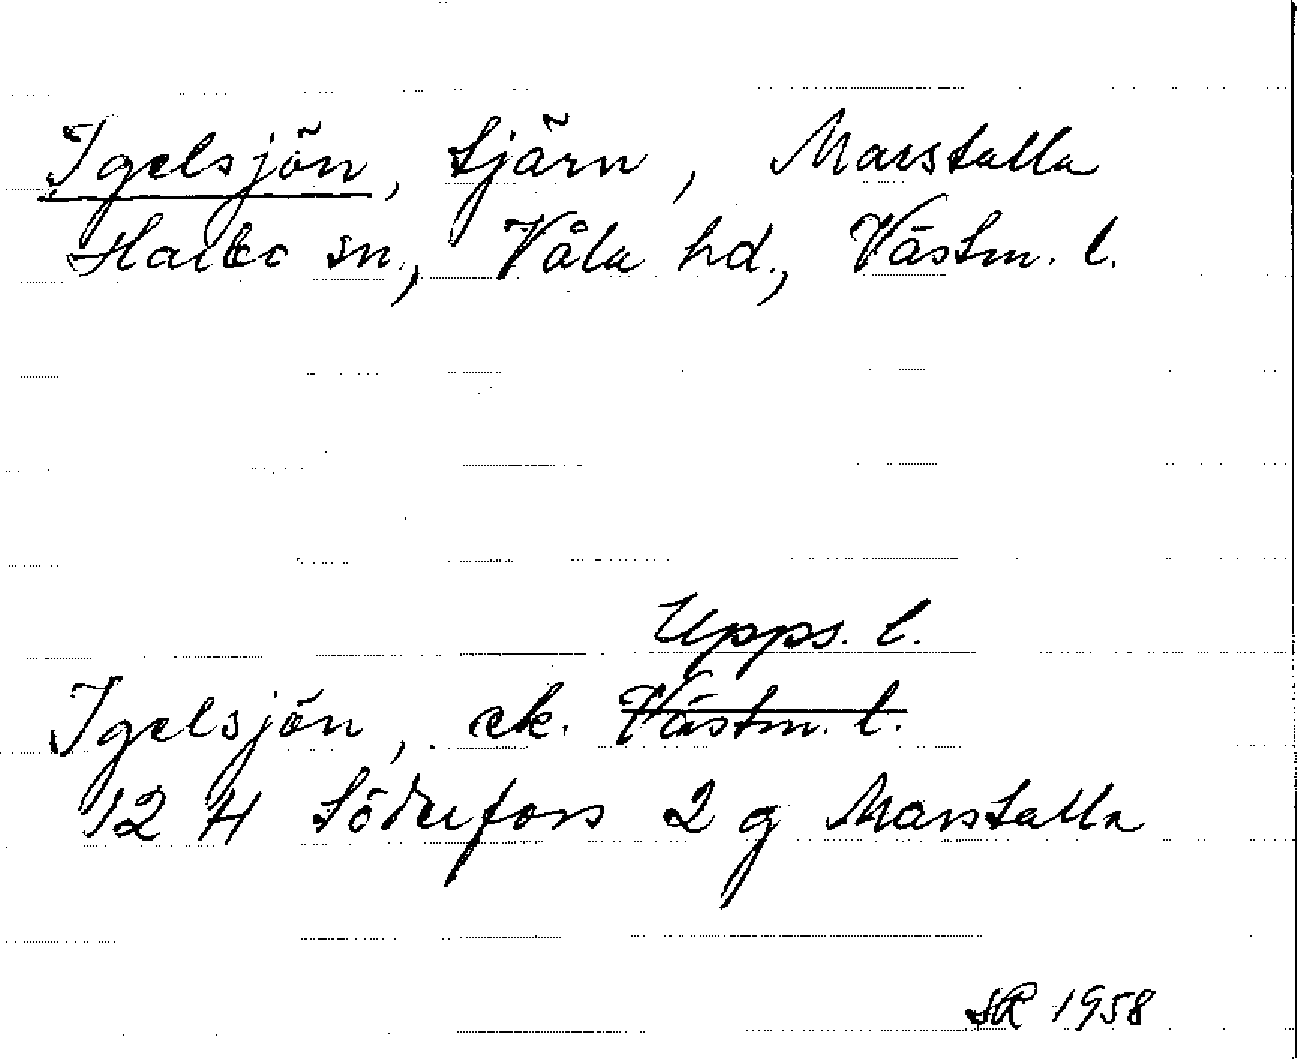 Igelsjön, tjärn, Marstalla
Harbo sn., Våla hd., Västm. l.
Upps. l.
Igelsjön, ek. Västm. l.
12 H Söderfors 2 g Marstalla
SR 1958